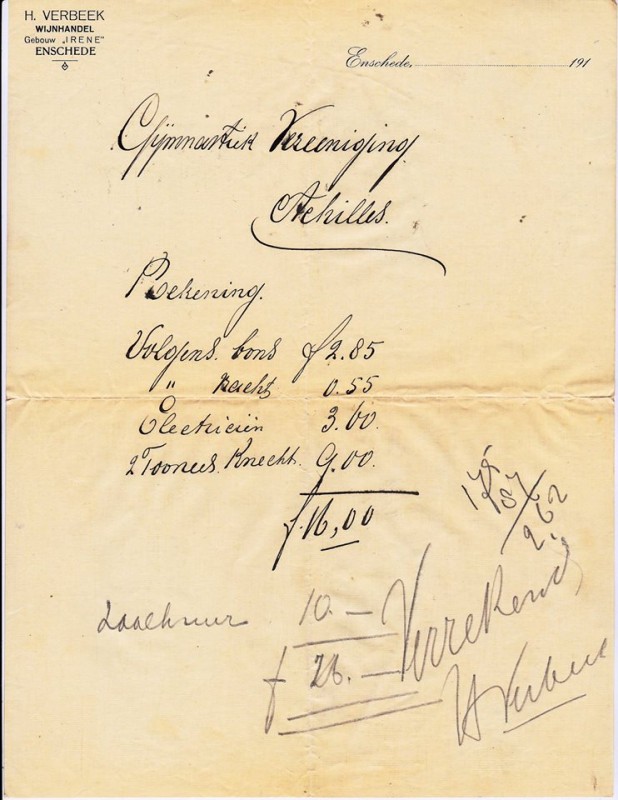 H. VERBEEK
WIJNHANDEL
Gebouw „IRENE"
ENSCHEDE
Enschede, 191
Gymnastiek Vereeniging
Achilles.
Rekening.
Volgens bons f 2.85
" 0.55
Electricien 3.60.
2 Tooneel Knecht. 9.00.
f. 16,00
175
87
2.62
Zaalhuur 10.—
f 26.— Verrekend
H Verbeek